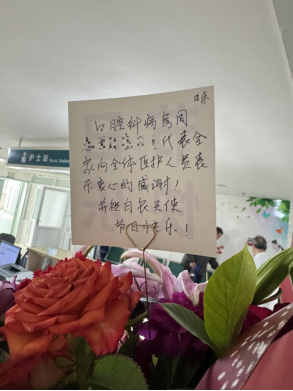 12床
口腔科病房周
代表全
家向全体医护人员表
示衷心的感谢！
并祝白衣天使
节日快乐！
护士站
Nurse Station